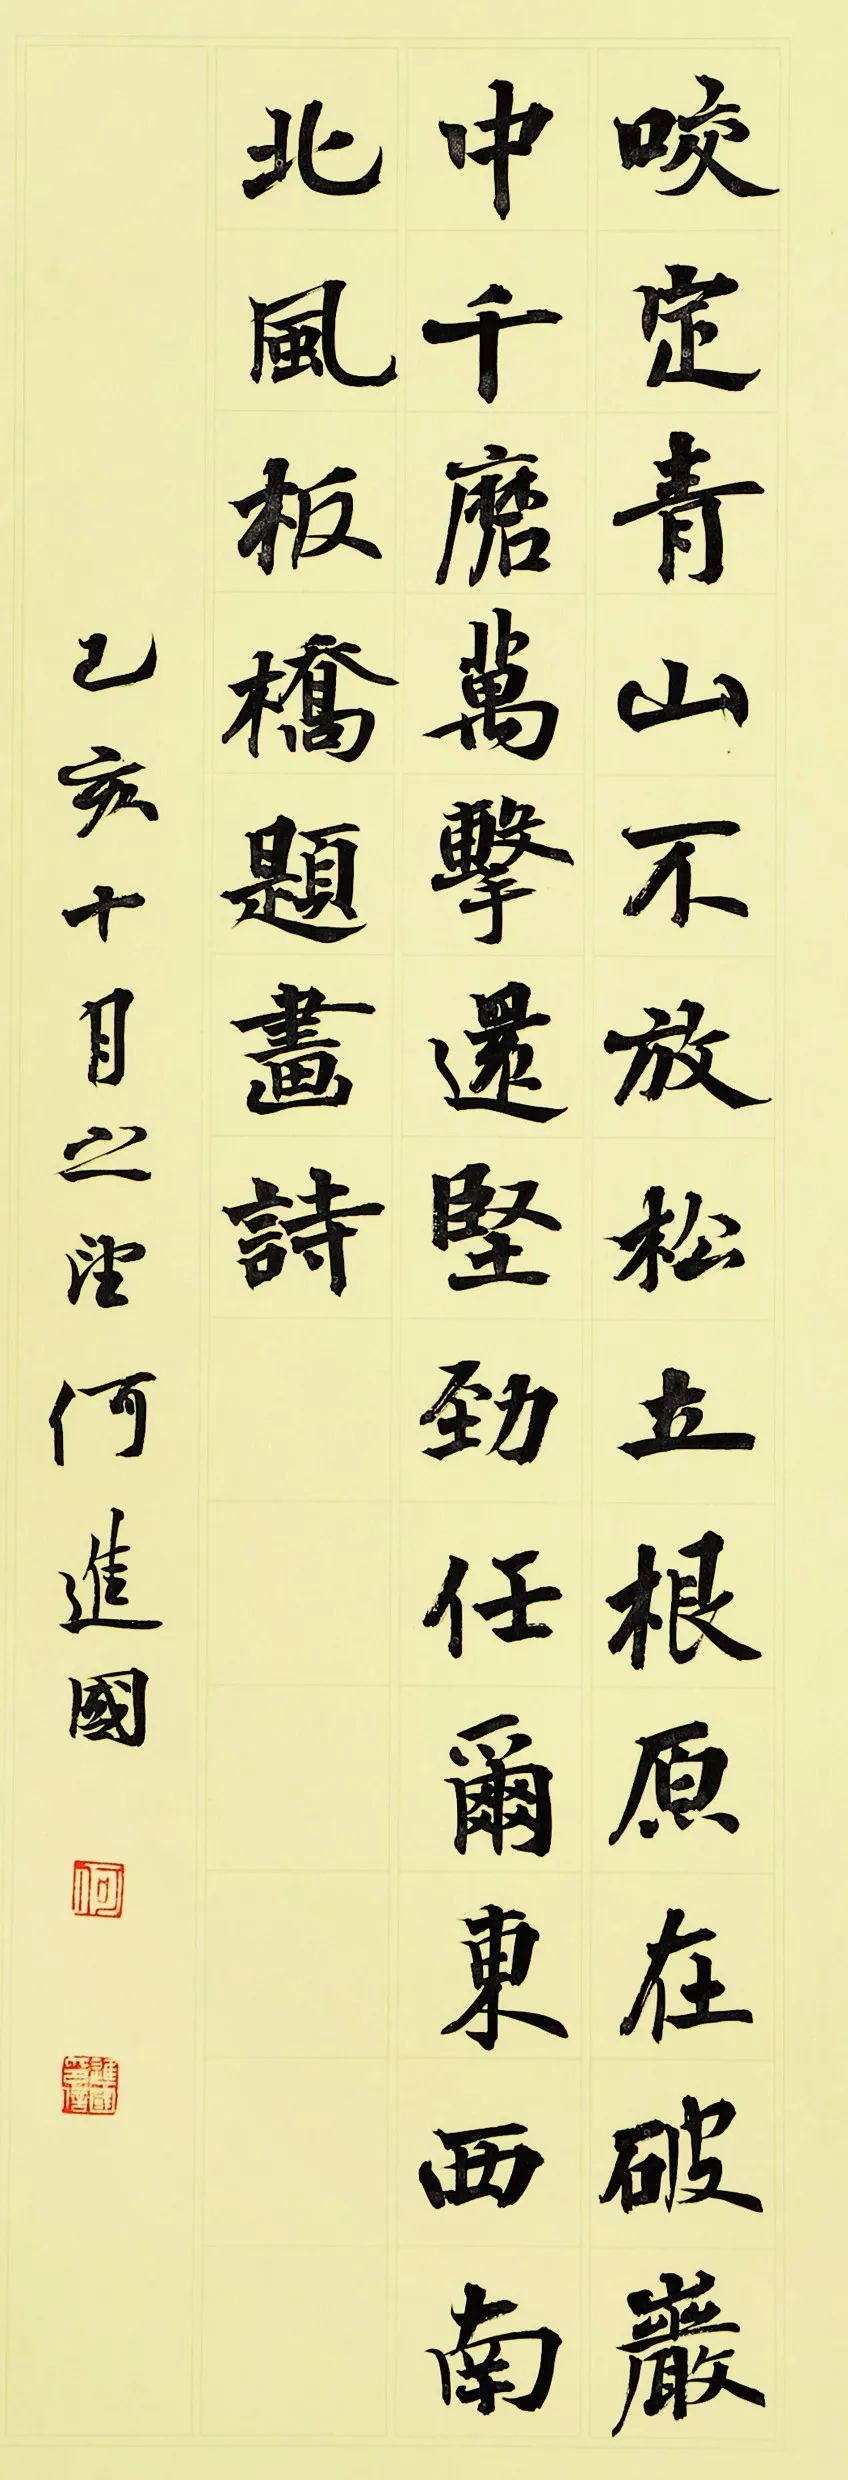 咬定青山不放松立根原在破巖
中千磨萬擊還堅勁任爾東西南
北風板橋題畫詩
乙亥十月之望何進國
何